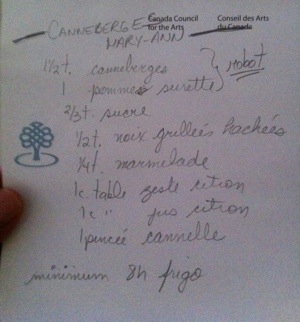 Canada Council Conseil des Arts
for the Arts du Canada
CANNEBERGE
MARY-ANN
1 1/2 t. canneberges } robot
1 pomme surette
2/3 t. sucre
1/2 t. noix grillées hachées
1/4 t. marmelade
1 c. table zeste citron
1 c " jus citron
1 pincée cannelle
minimum 8h frigo